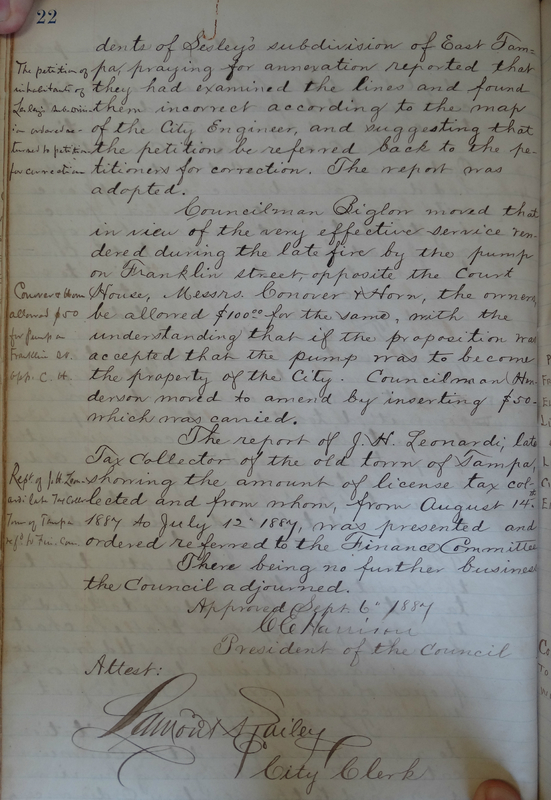 22
dents of Lesley's subdivision of East Tam-
pa, praying for annexation reported that
they had examined the lines and found
them incorrect according to the map
of the City Engineer, and suggesting that
the petition be referred back to the pe-
titioners for correction. The report was
adopted.
The petition of
inhabitants of
Lesley's subdivi-
for correction
Councilman Biglow moved that
in view of the very effective service ren-
dered during the late fire by the pump
on Franklin street, opposite the Court
House, Messrs. Conover & Horn, the owners,
be allowed $100.00 for the same, with the
understanding that if the proposition was
accepted that the pump was to become
the property of the City. Councilman Hen-
derson moved to amend by inserting $50-
which was carried.
Conover & Horn
allowed $50
for pump on
Franklin St.
opp. C. H.
The report of J. H. Leonardi, late
Tax Collector of the old town of Tampa,
showing the amount of license tax col-
lected and from whom, from August 14th
1887 to July 12" 1887, was presented and
ordered referred to the Finance Committee
Rept. of J. H. Leon-
ardi late Tax Coll
Town of Tampa
ref'd to Fin. Com
There being no further business
the Council adjourned.
Approved Sept. 6" 1887
C E Harrison
President of the Council
Attest:
Lamont Bailey
City Clerk